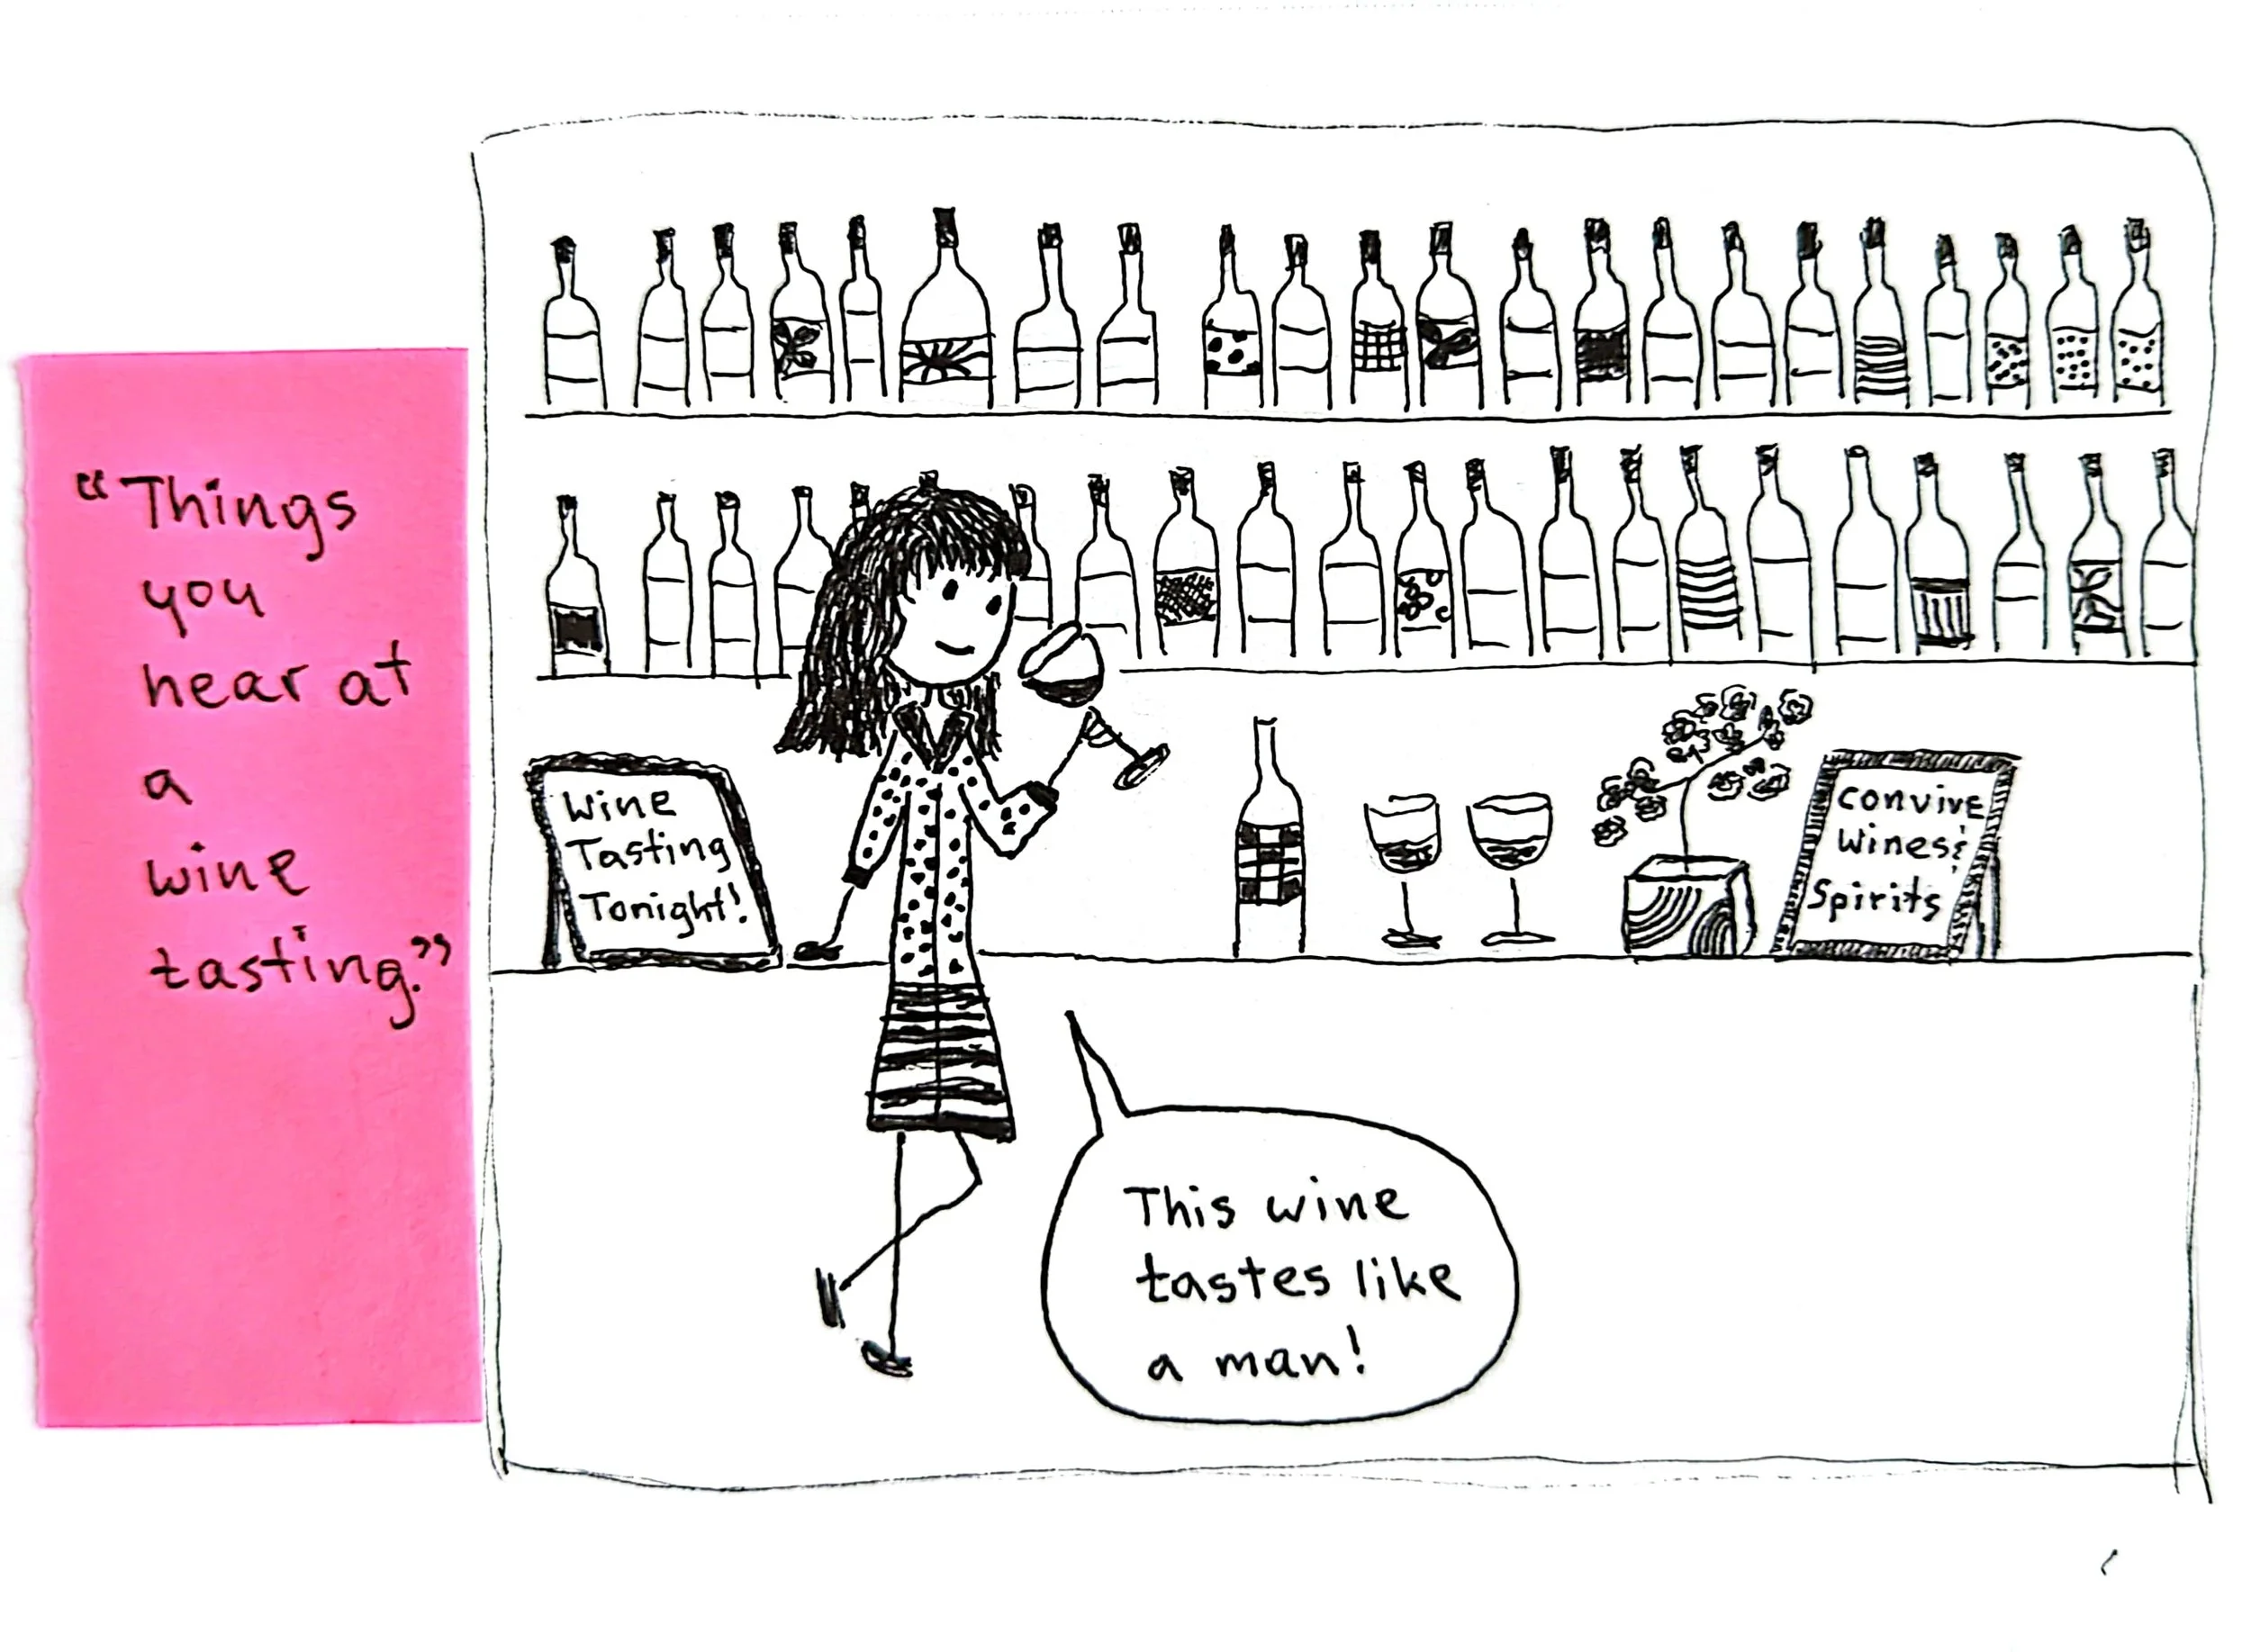 “Things
you
hear at
a
wine
tasting.”
Wine
Tasting
Tonight!
Convive
Wines &
Spirits
This wine
tastes like
a man!